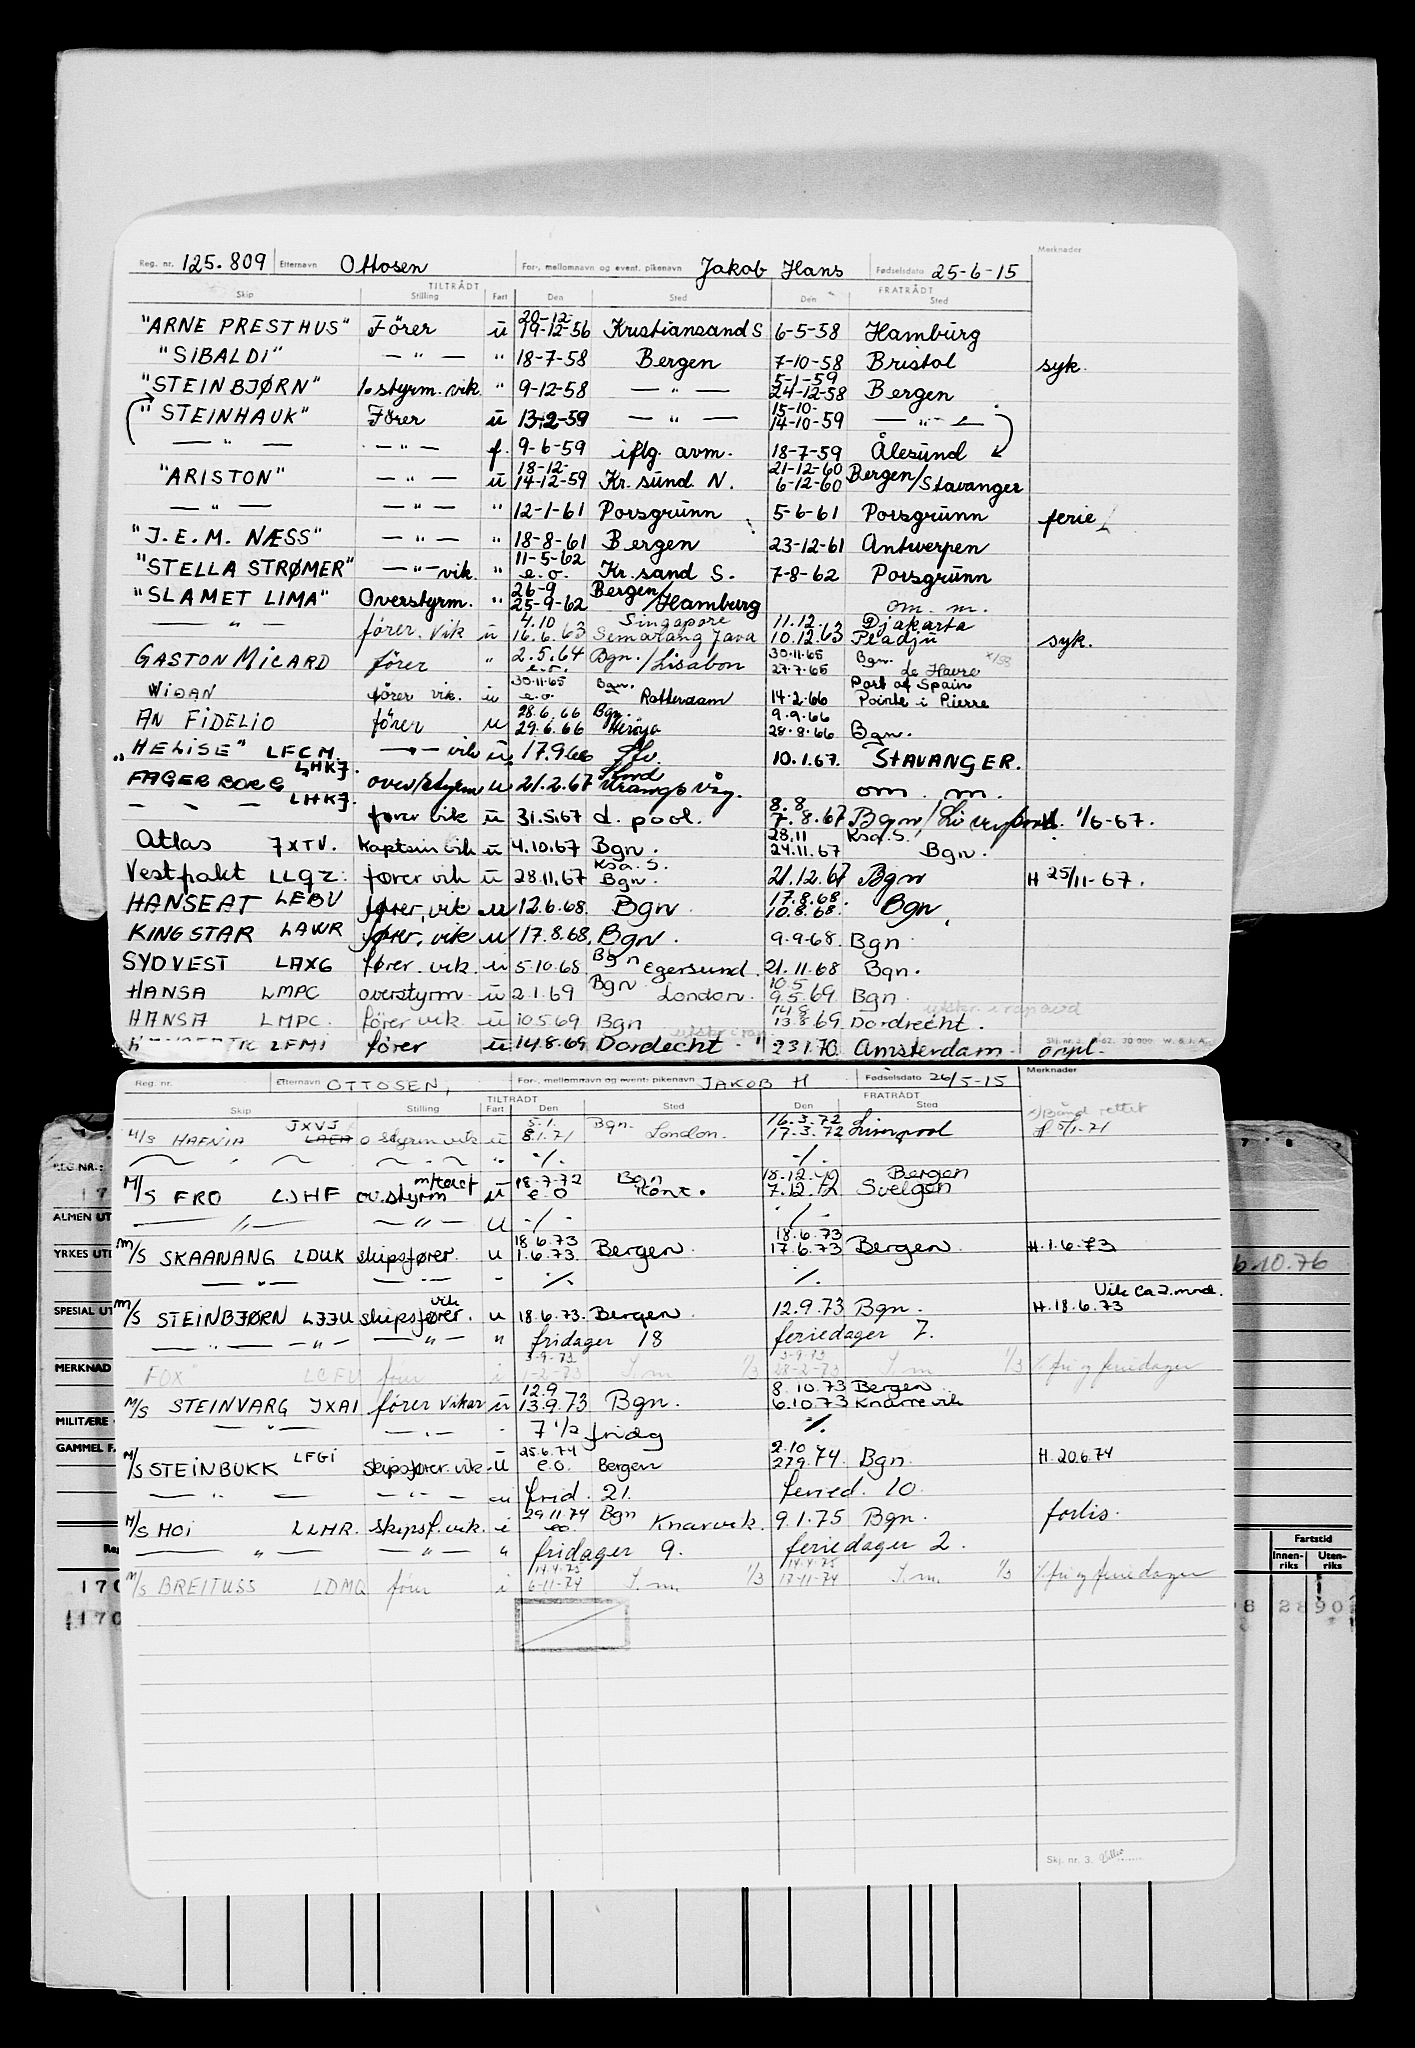 Reg. nr. 125.809 Etternavn Ottosen For-, mellomnavn og event. pikenavn Jakob Hans Fødselsdato 25-6-15 Merknader
TILTRÅDT FRATRÅDT
Skip Stilling Fart Den Sted Den Sted
20-12-
"ARNE PRESTHUS" Förer ü 19-12-56 Kristiansand S 6-5-58 Hamburg
"SIBALDI" — " — " 18-7-58 Bergen 7-10-58 Bristol syk.
5-1-59
"STEINBJØRN" 1. styrm. vik. " 9-12-58 — " — 24-12-58 Bergen
15-10-
"STEINHAUK" Förer ü 13-2-59 — " — 14-10-59 — " —
— " — — " — f. 9-6-59 iflg. avm. 18-7-59 Ålesund
18-12- 21-12-60
"ARISTON" — " — ü 14-12-59 Kr. sund N. 6-12-60 Bergen/Stavanger
— " — — " — " 12-1-61 Porsgrunn 5-6-61 Porsgrunn ferie
"J.E.M. NÆSS" — " — " 18-8-61 Bergen 23-12-61 Antwerpen
11-5-62
"STELLA STRØMER" — " — vik. " e.o. Kr. sand S. 7-8-62 Porsgrunn
26-9 Bergen
"SLAMET LIMA" Overstyrm. " 25-9-62 /Hamburg om. m.
4.10 Singapore 11.12. Djakarta
— " — förer. vik ü 16.6.63 Semarang Java 10.12.63 Pladju syk.
2.5.64 30.11.65 Bgn.
GASTON MICARD förer " e.o. Bgn./Lisabon 27.7.65 Le Havre
30.11.65 Bgn. Port of Spain
WIGAN förer vik. ü e.o. Rotterdam 14.2.66 Pointe i Pierre
28.6.66 Bgn. 9.9.66
AN FIDELIO fører u 29.6.66 Herøya 28.8.66 Bgn.
"HELISE" LFCM — " — vik ü 17.9.66 10.1.67. STAVANGER.
LHKJ.
FAGERBORG over/styrm u 21.2.67 om. m.
LHKJ. 8.8
— " — fører vik ü 31.5.67 d. pool. 7.8.67 Bgn/Liverpool. 1/6-67.
28.11 Ksa. S.
Atlas JXTV. Kaptein vik ü 4.10.67 Bgn. 24.11.67 Bgn.
Ksa. S.
Vestfakt LLQZ. fører vik ü 28.11.67 Bgn. 21.12.67 Bgn H 25/11-67.
17.8.68.
HANSEAT LEBU fører, vik u 12.6.68. Bgn 10.8.68. Bgn
KINGSTAR LAWR fører, vik u 17.8.68. Bgn. 9.9.68 Bgn
SYDVEST LAXG fører vik. u 5.10.68 Bgn Egersund. 21.11.68 Bgn.
Bgn 10.5
HANSA LMPC overstyrm ü 2.1.69 London. 9.5.69 Bgn
14.8
HANSA LMPC. förer vik ü 10.5.69 Bgn 13.8.69 Dordrecht.
LFMI fører ü 14.8.69 Dordecht 23.1.70 Amsterdam
Reg. nr. Etternavn OTTOSEN, For-, mellomnavn og event. pikenavn JAKOB H Fødselsdato 26/5-15 Merknader
TILTRÅDT FRATRÅDT
Skip Stilling Fart Den Sted Den Sted
JXVJ 5.1. Bgn. 16.3.72
M/S HAFNIA o styrm vik ü 8.1.71 London. 17.3.72 Liverpool 5/1-71
./. ./.
18-7-72 Bgn 18.12.72 Bergen
M/S FRO LJHF ov. styrm ü e.o Kont. 7.12.72 Svelgen
— " — — " — u ./. ./.
18.6.73 18.6.73
M/S SKAANANG LDUK skipsfører. u 1.6.73. Bergen 17.6.73 Bergen H.1.6.73
— " — — " — ./. ./.
vik Vik ca 2. mnd.
M/S STEINBJØRN LJJU skipsfører. u 18.6.73. Bergen 12.9.73 Bgn. H.18.6.73
— " — — " — " fridager 18 feriedager 7.
3-9-73 3-9-73
FOX fører i 1-2-73 1/3 28-2-73 1/3 fri og feriedager
12.9 8.10.73 Bergen
M/S STEINVARG JXAI fører vikar ü 13.9.73 Bgn. 6.10.73 Knarrevik
— " — — " — 7 1/2 fridag ./.
LFGI 25.6.74 2.10
M/S STEINBUKK Skipsfører. vik ü e.o. Bergen 27.9.74 Bgn. H. 20.6.74
— " — — " — u frid. 21. feried. 10.
29.11.74 Bgn
M/S HOI LLMR. skipsf. vik. i eo Knarvik. 9.1.75 Bgn. forlis.
— " — — " — " fridager 9. feriedager 2.
M/S BREITUSS LDMQ fører i 6-11-74 1/3 17-11-74 1/3 fri og feriedager
Skj. nr. 3.
REG.NR.:
ALMEN UT
YRKES UT
SPESIAL UT
MERKNAD
MILITÆRE
GAMMEL F.
10.76
Fartstid
Innen-riks Uten-riks
170
170
2890